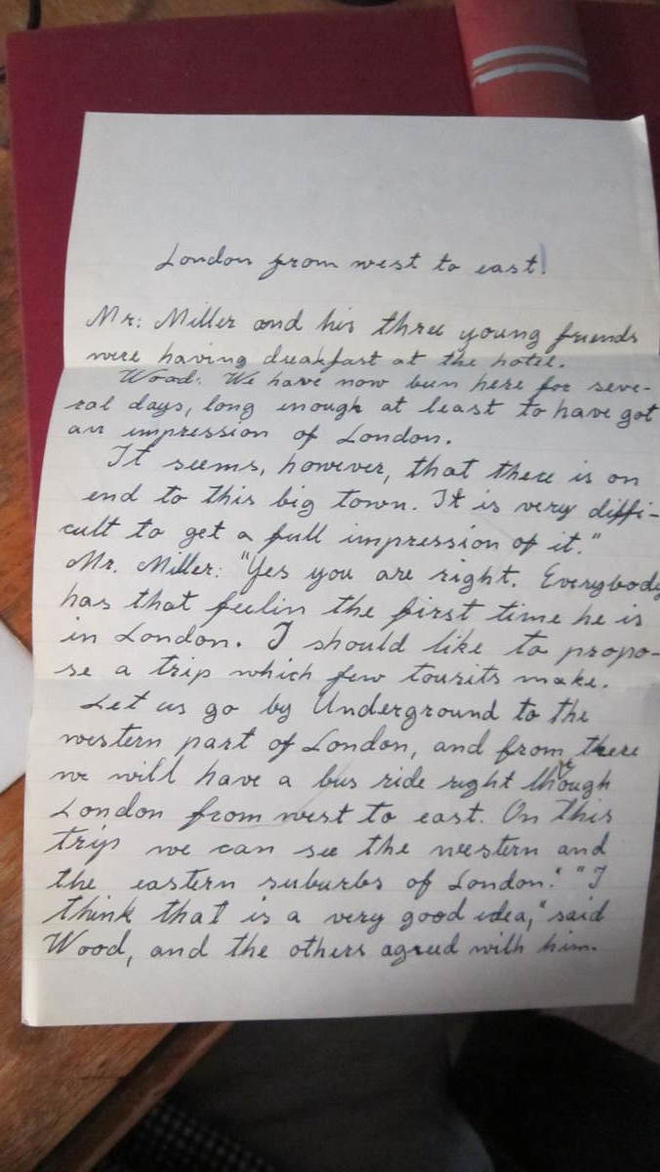 London from west to east!
Mr: Miller and his three young friends
were having breakfast at the hotel.
Wood: We have now been here for seve-
ral days, long enough at least to have got
an impression of London.
It seems, however, that there is on
end to this big town. It is very diffi-
cult to get a full impression of it."
Mr. Miller: "Yes you are right. Everybody
has that feelin the first time he is
in London. I should like to propo-
se a trip which few tourits make.
Let us go by Underground to the
western part of London, and from there
we will have a bus ride right though
London from west to east. On this
trip we can see the western and
the eastern suburbs of London." "I
think that is a very good idea," said
Wood, and the others agreed with him.